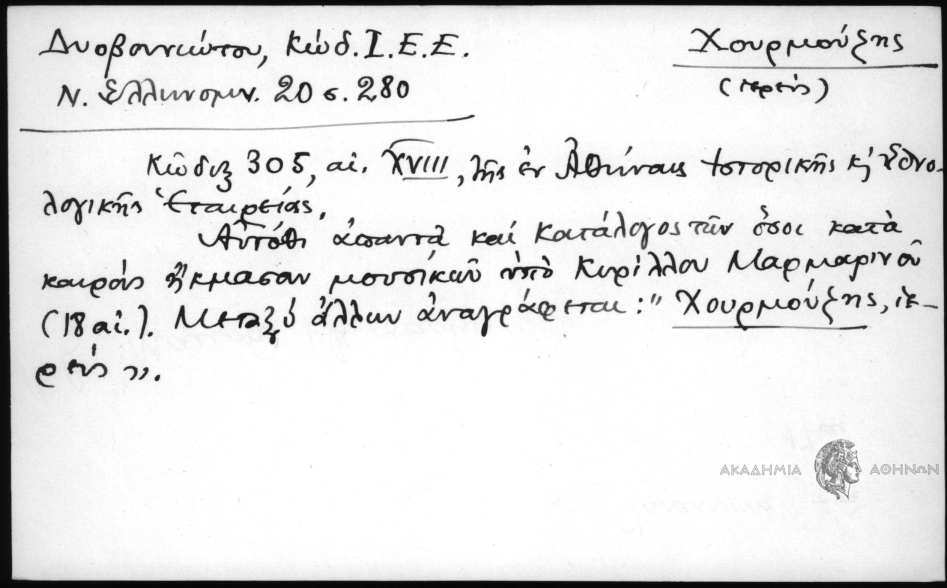 Δυοβουνιώτου, Κώδ. Ι.Ε.Ε.
Ν. Ἑλληνομν. 20 σ. 280
Χουρμούζης
(ἱερεύς)
Κῶδιξ 305, αἰ. XVIII, τῆς ἐν Ἀθήναις Ἱστορικῆς κ̓ Ἐθνο-
λογικῆς Ἑταιρείας.
Αὐτόθι ἀπαντᾷ καὶ κατάλογος τῶν ὅσοι κατὰ
καιροὺς ἤκμασαν μουσικῶν ὑπὸ Κυρίλλου Μαρμαρινοῦ
(18 αἰ.). Μεταξύ ἄλλων ἀναγράφεται: "Χουρμούζης, ἱε-
ρεύς".
ΑΚΑΔΗΜΙΑ ΑΘΗΝΩΝ